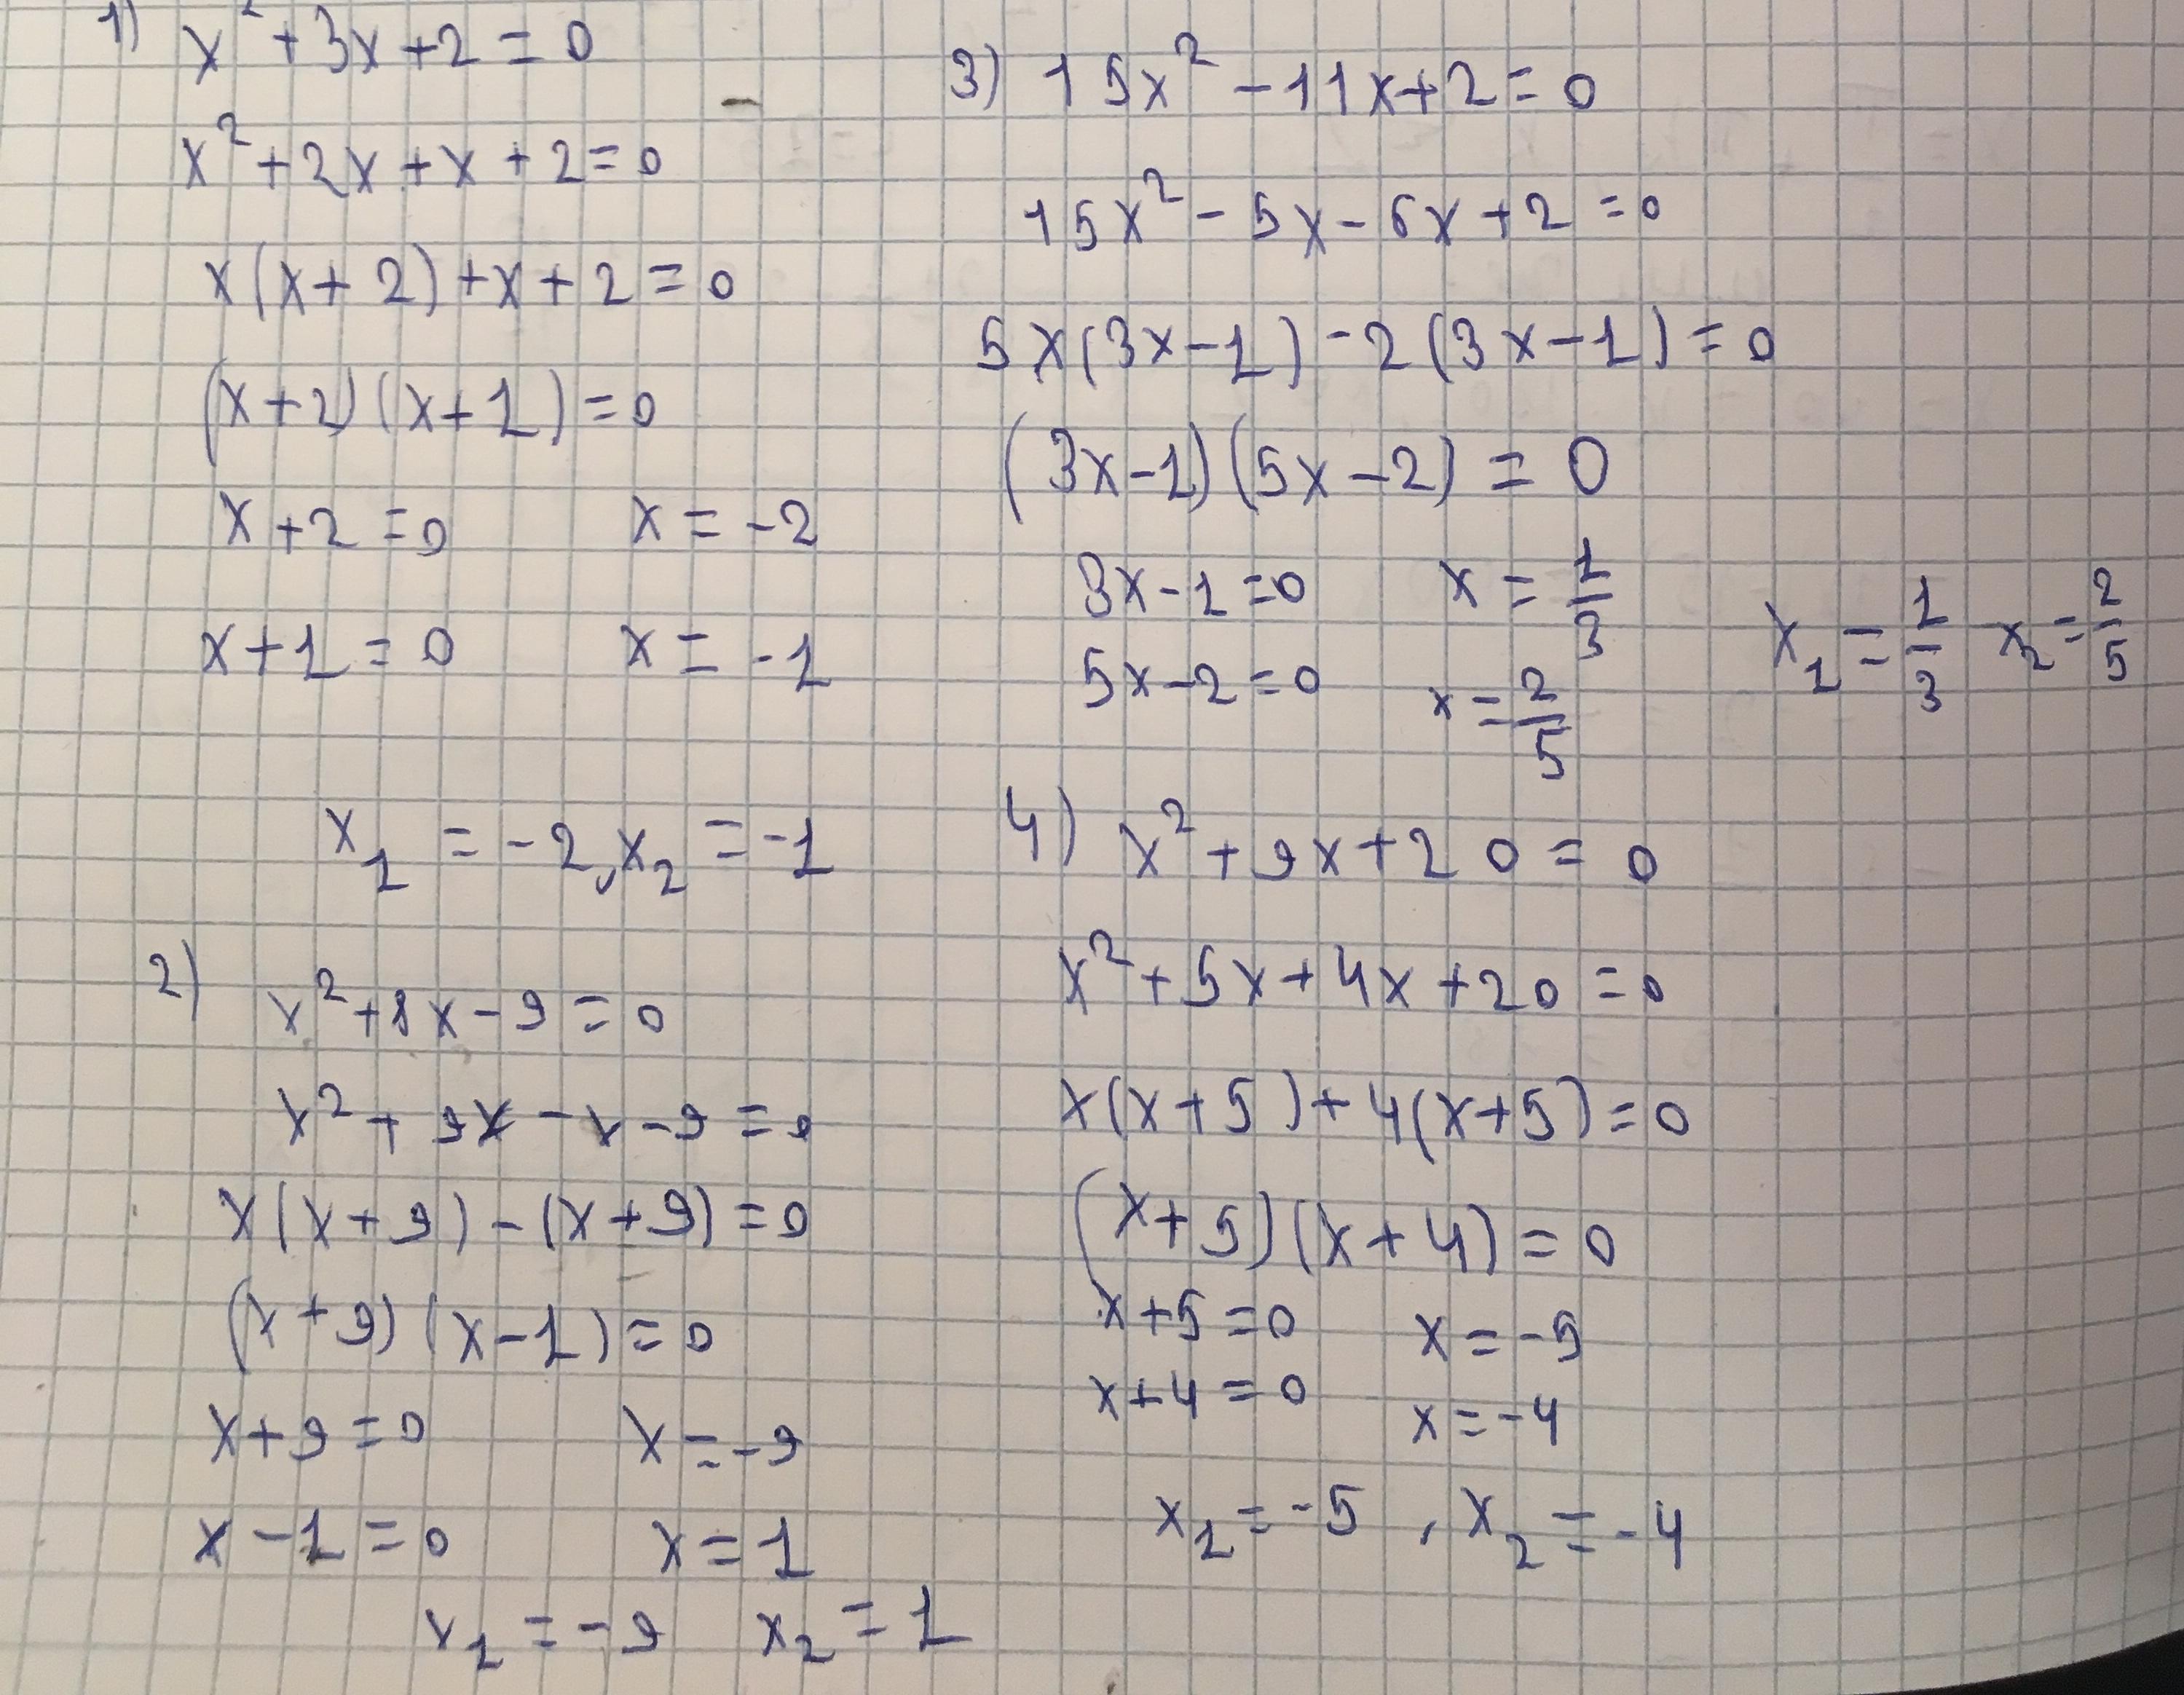 1) x² + 3x + 2 = 0
x² + 2x + x + 2 = 0
x(x + 2) + x + 2 = 0
(x + 2)(x + 1) = 0
x + 2 = 0 x = -2
x + 1 = 0 x = -1
x₁ = -2, x₂ = -1
2) x² + 8x - 9 = 0
x² + 9x - x - 9 = 0
x(x + 9) - (x + 9) = 0
(x + 9)(x - 1) = 0
x + 9 = 0 x = -9
x - 1 = 0 x = 1
x₁ = -9 x₂ = 1
3) 15x² - 11x + 2 = 0
15x² - 5x - 6x + 2 = 0
5x(3x - 1) - 2(3x - 1) = 0
(3x - 1)(5x - 2) = 0
3x - 1 = 0 x = 1/3
5x - 2 = 0 x = 2/5
x₁ = 1/3 x₂ = 2/5
4) x² + 9x + 20 = 0
x² + 5x + 4x + 20 = 0
x(x + 5) + 4(x + 5) = 0
(x + 5)(x + 4) = 0
x + 5 = 0 x = -5
x + 4 = 0 x = -4
x₁ = -5, x₂ = -4